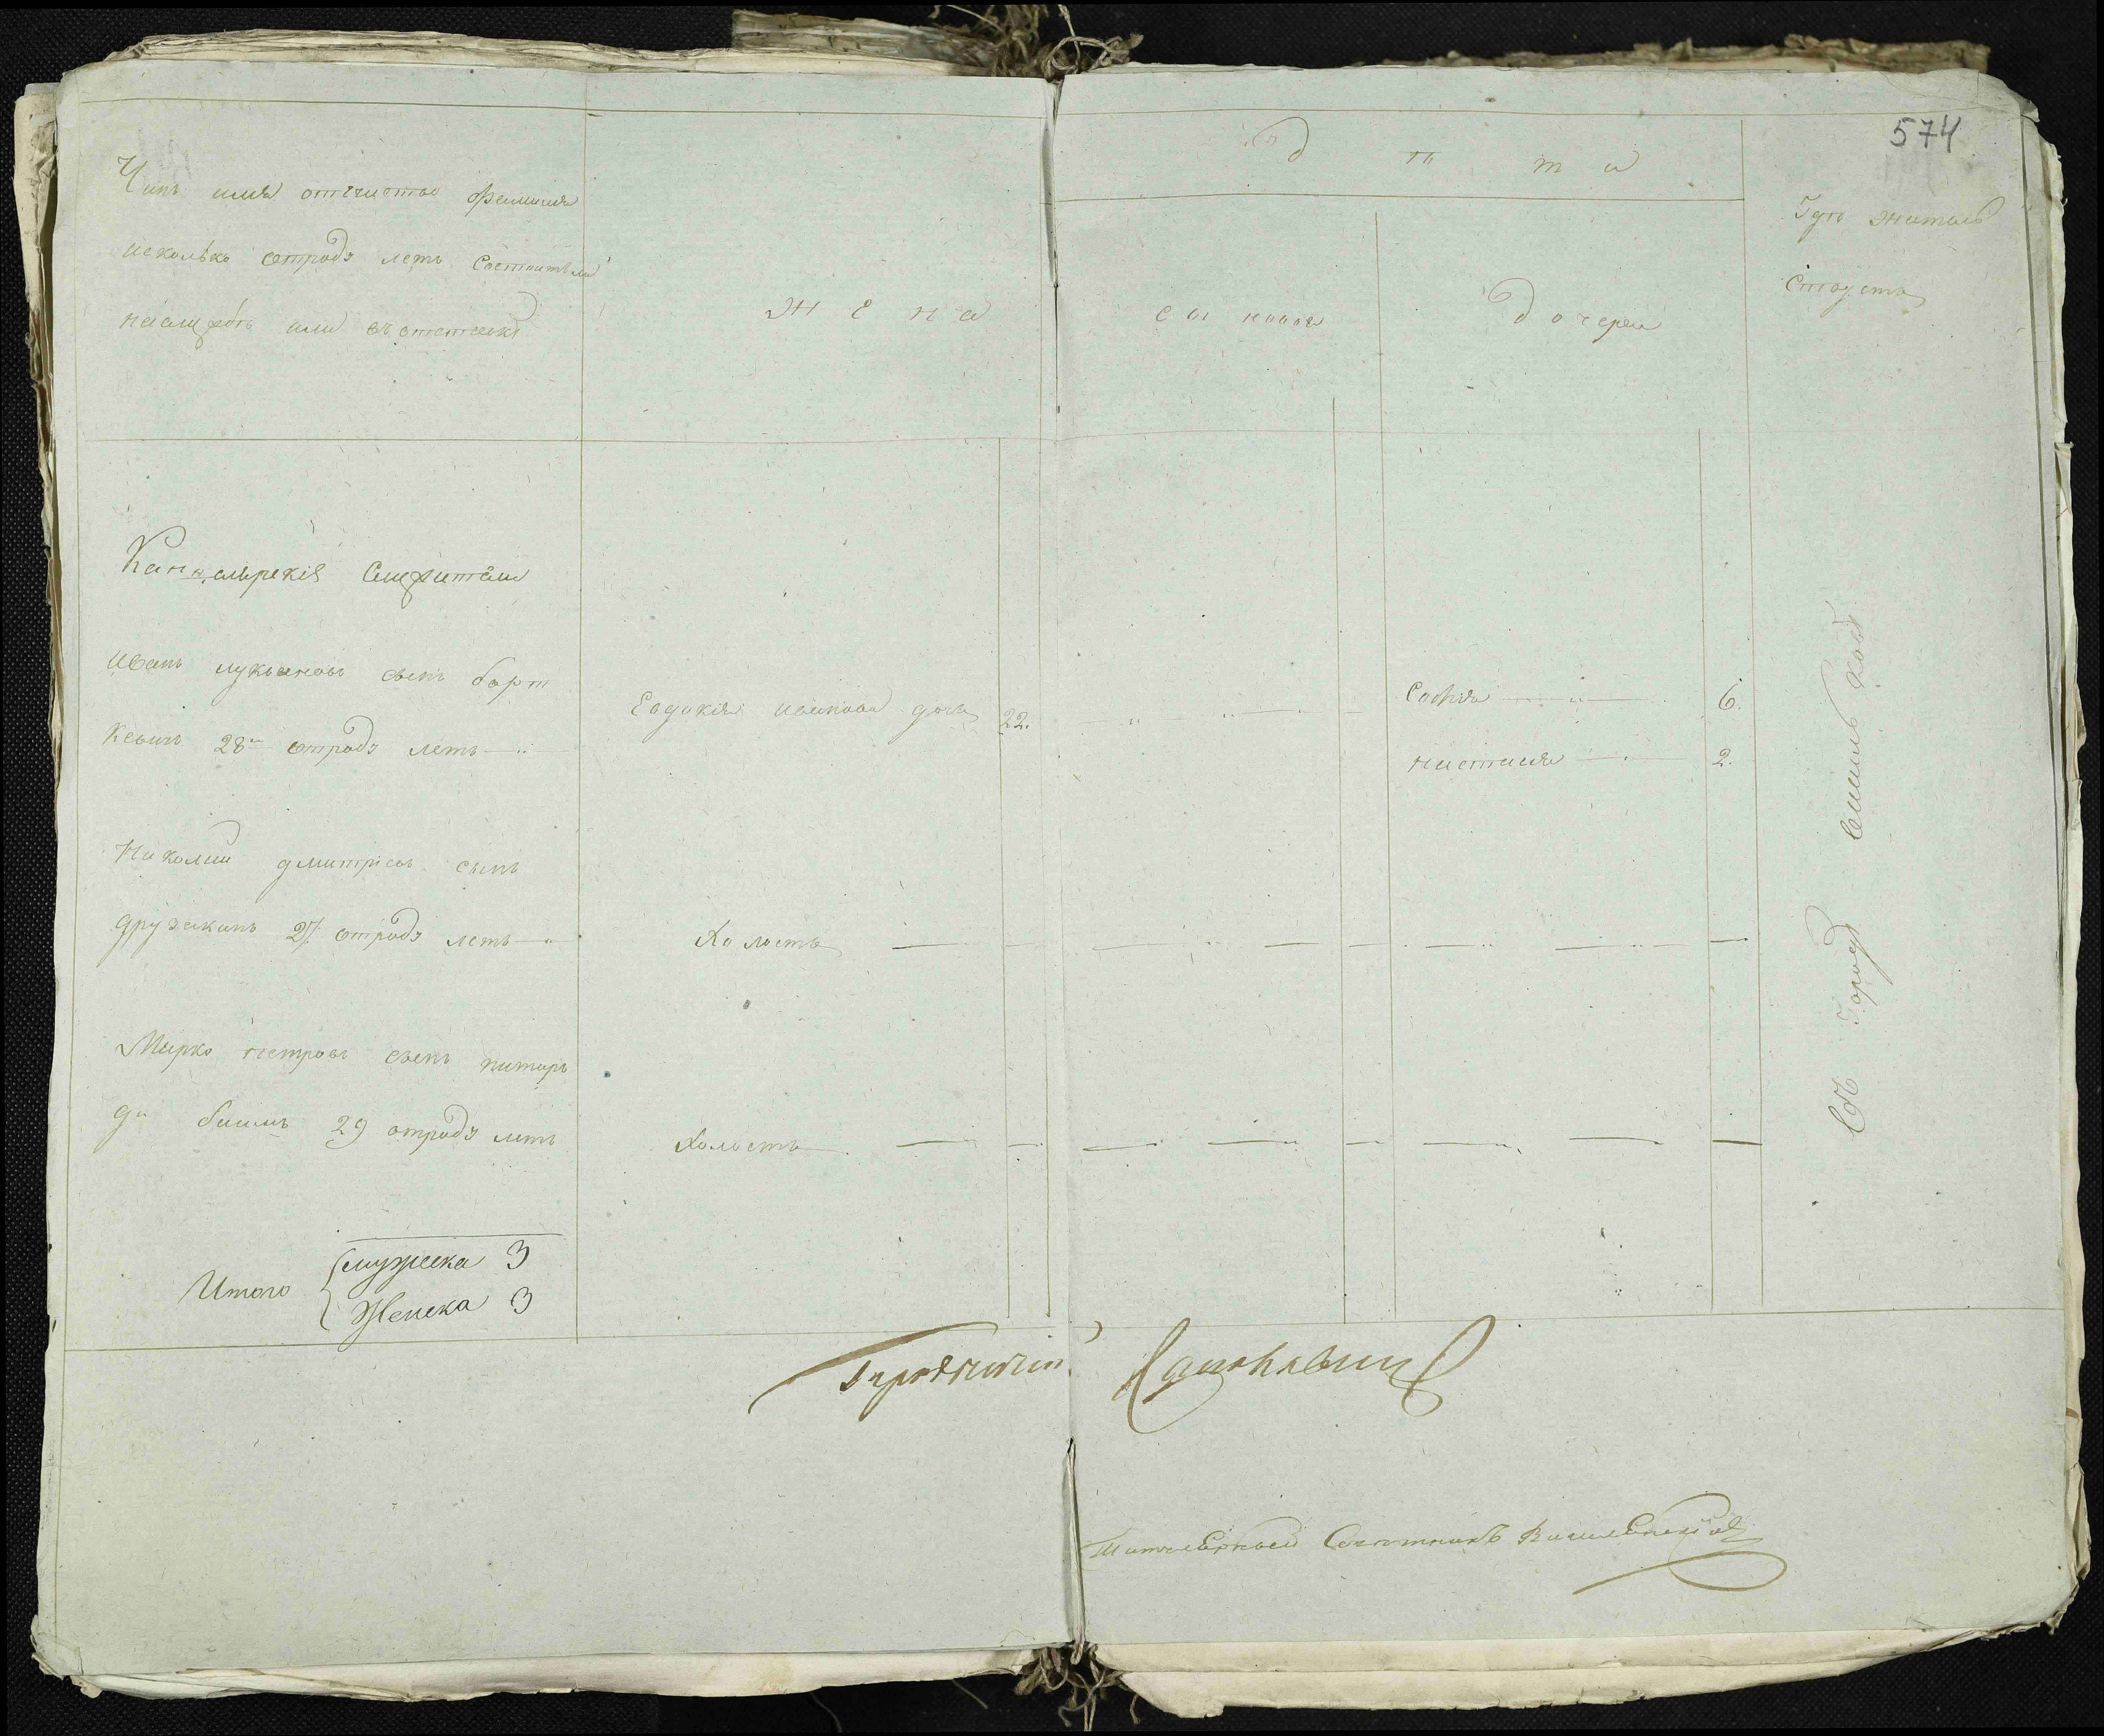 574
Чинъ имя отечиство Фамилия
исколько отродя летъ Состоитъ ли
наслужбѣ или въ отставкѣ
Жена
Дѣти
сыновя
дочереи
Гдѣ жителъ
Ствуетъ
Канцелярския Служители
Иванъ лукьяновъ сынъ барт
кевичъ 28 отродя летъ
Евдокия иванова дочъ 22.
София 6.
настасия 2.
Николаи дмитриевъ сынъ
друзакинъ 27 отродя летъ
Холостъ
Марко петровъ сынъ
29 отродя летъ
Холостъ
Въ Городѣ
Итого
мужеска 3
Женска 3
Городничій
Титулярной Советникъ